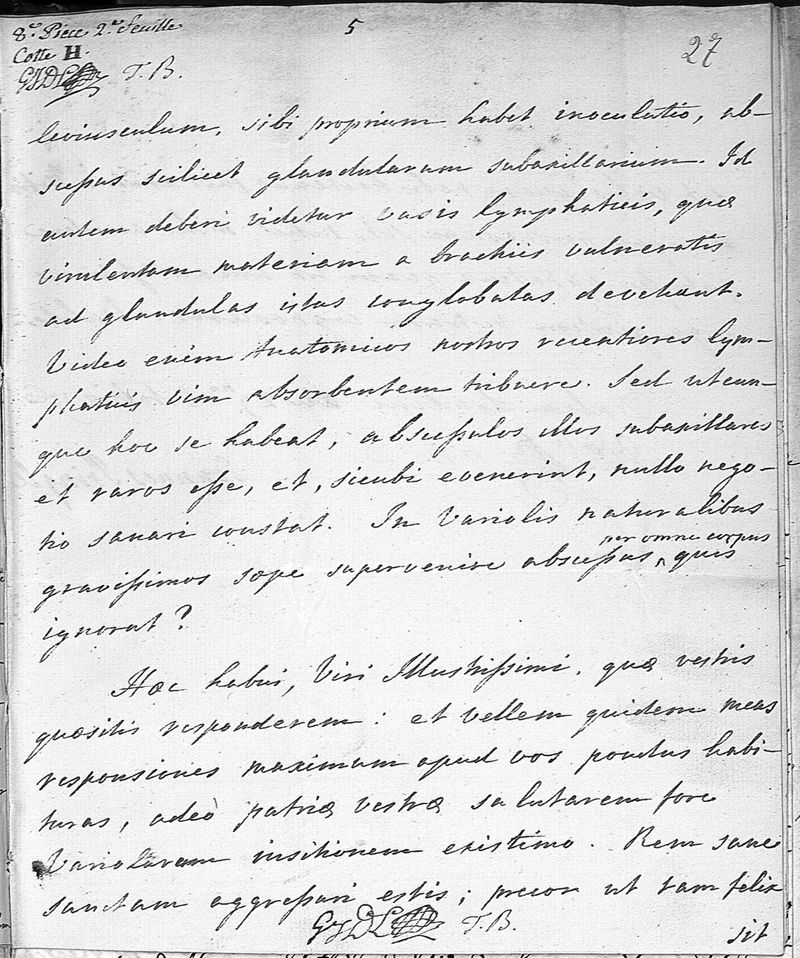 8.e Piece 2.e Feuille
5
27
Cotte H.
GJDL T. B.
leviusculum, sibi proprium habet inoculatio, ab-
scessus scilicet glandularum subaxillarium. Id
autem deberi videtur vasis lymphaticis, quæ
virulentam materiam a brachiis vulneratis
ad glandulas istas conglobatas devehunt.
Video enim Anatomicos nostros recentiores lym-
phaticis vim absorbentem tribuere. Sed utcun-
que hoc se habeat, abscessulos illos subaxillares
et raros esse, et, sicubi evenerint, nullo nego-
tio sanari constat. In Variolis naturalibus
per omne corpus
gravissimos sæpe supervenire abscessus, ^ quis
ignorat?
Hæc habui, Viri Illustrissimi, quæ vestris
quæsitis responderem: et vellem quidem meas
responsiones maximum apud vos pondus habi-
turas, adeò patriæ vestræ salutarem fore
Variolarum insitionem existimo. Rem sane
sanctam aggressuri estis; precor ut tam felix
GJDL T. B.
sit